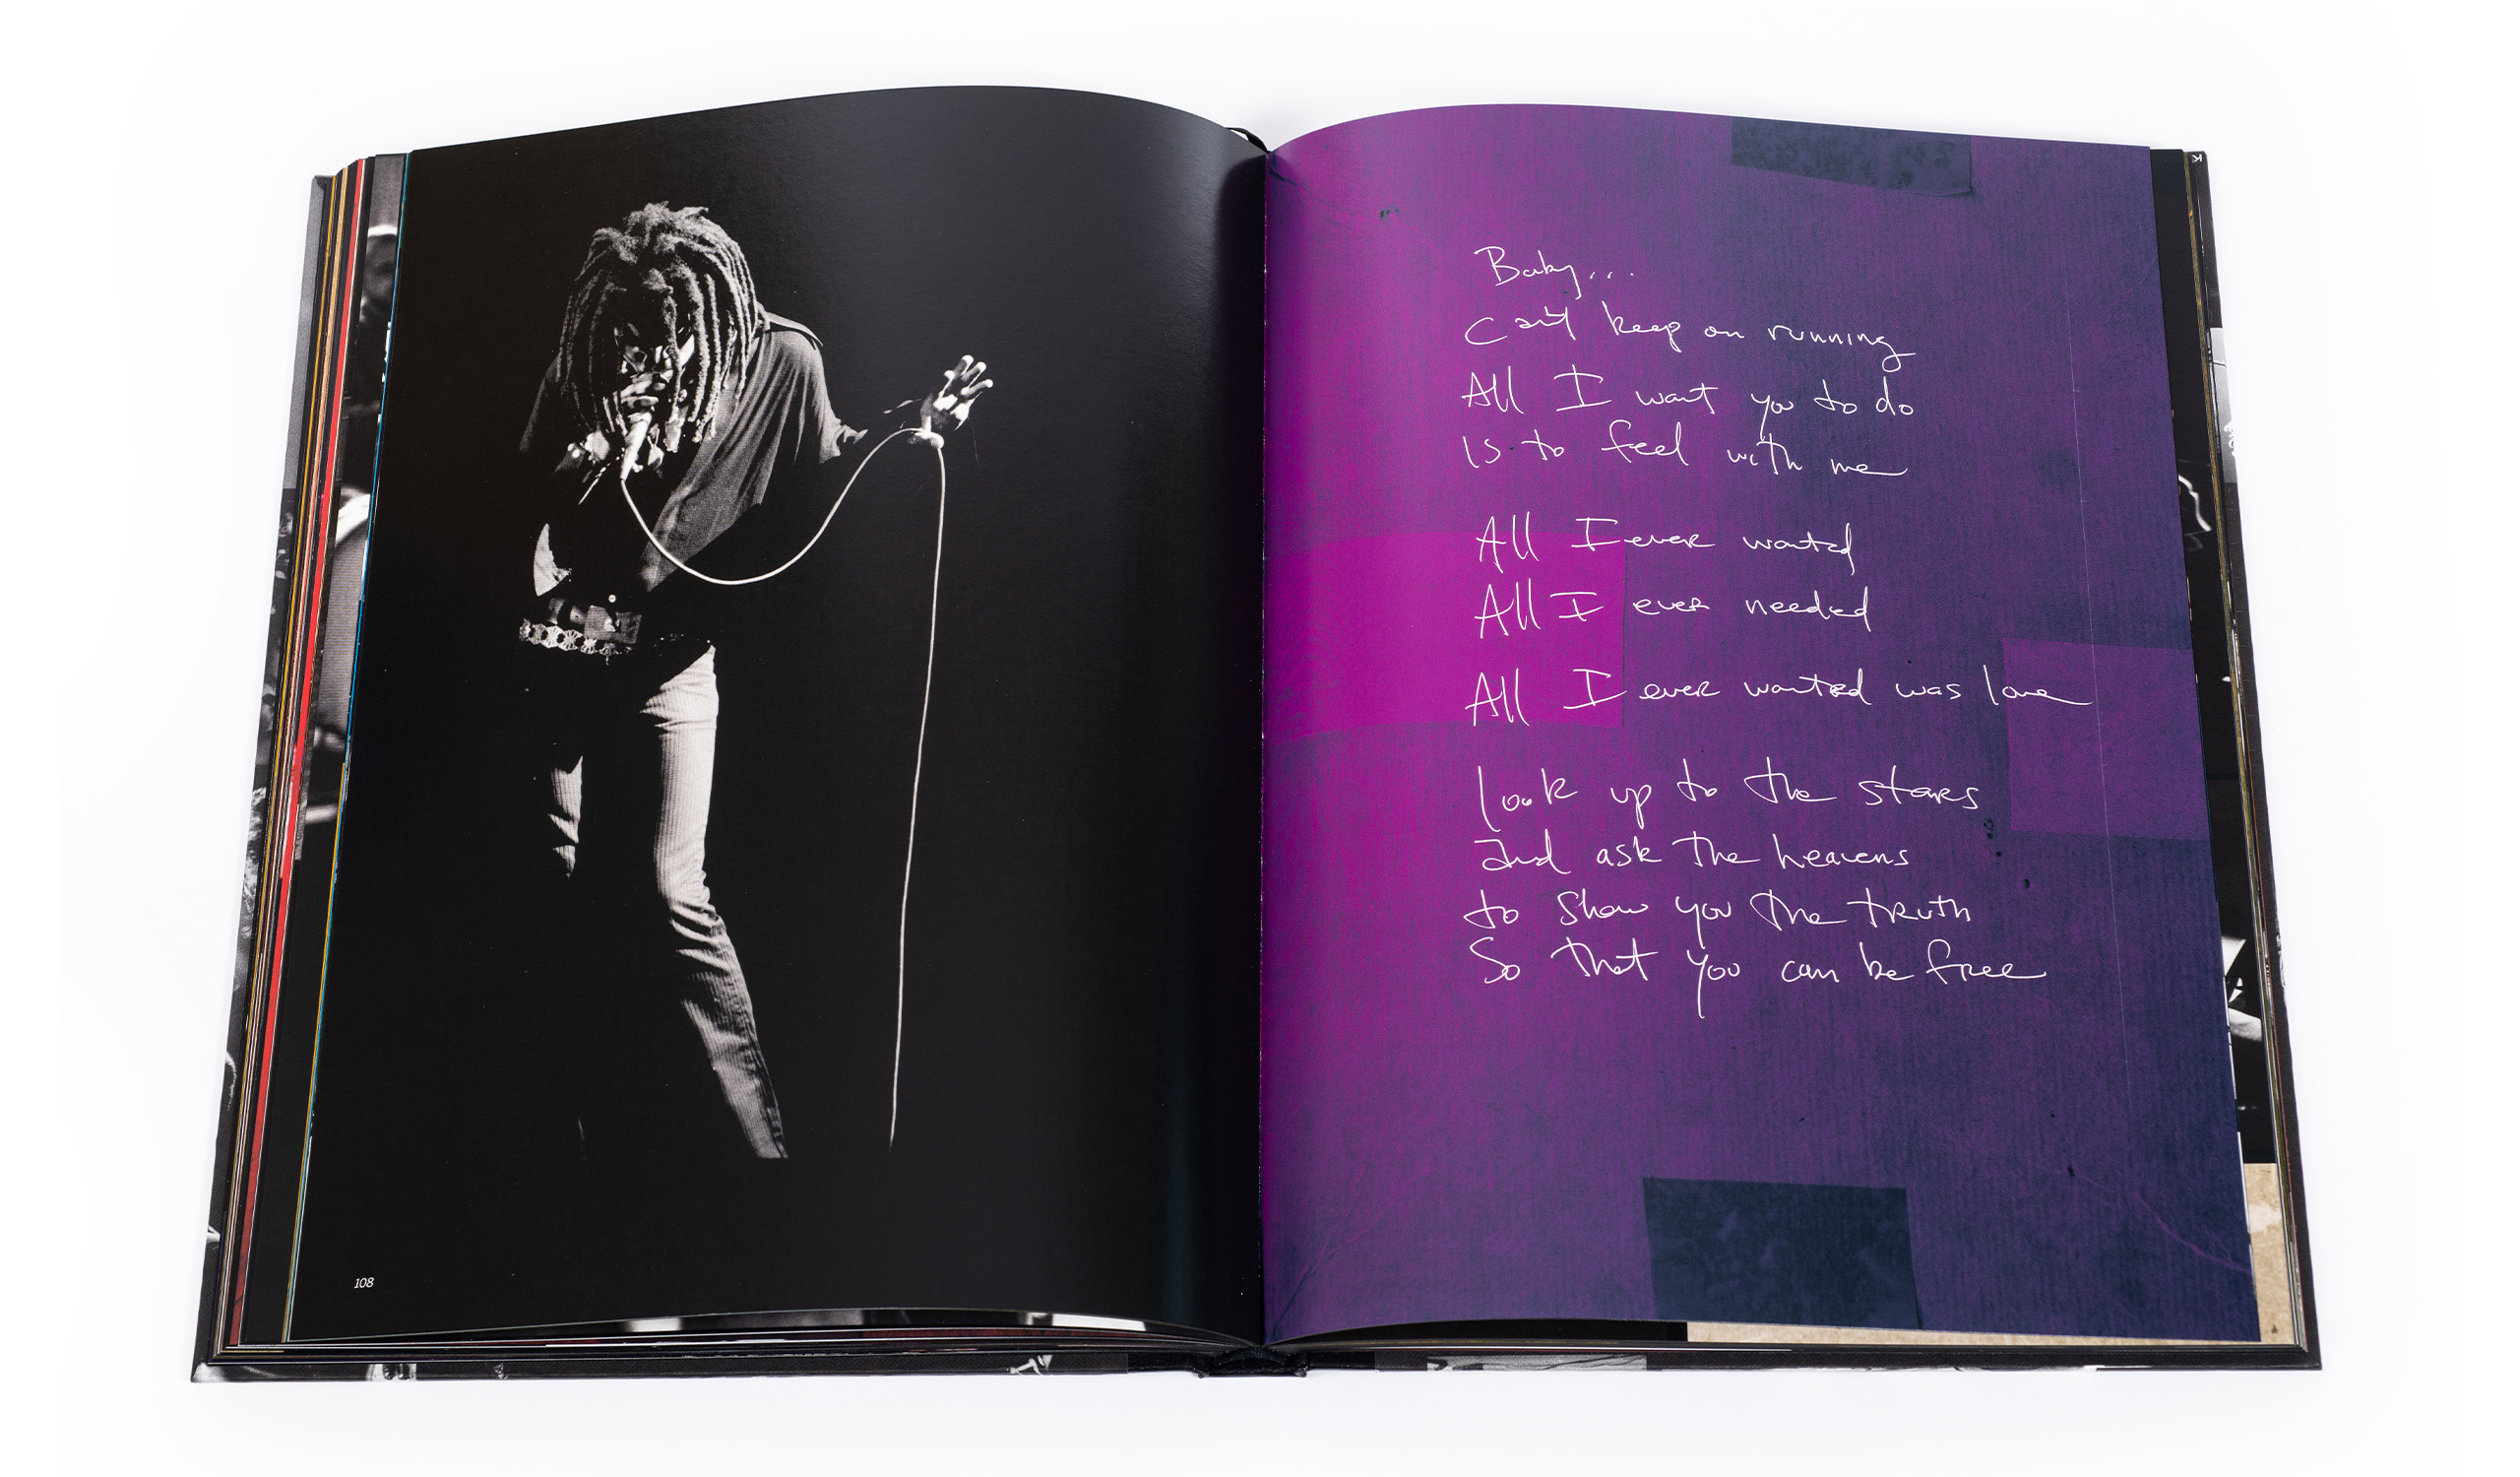 108
Baby...
Can't keep on running
All I want you to do
Is to feel with me
All I ever wanted
All I ever needed
All I ever wanted was love
look up to the stars
and ask the heavens
to show you the truth
So that you can be free
K